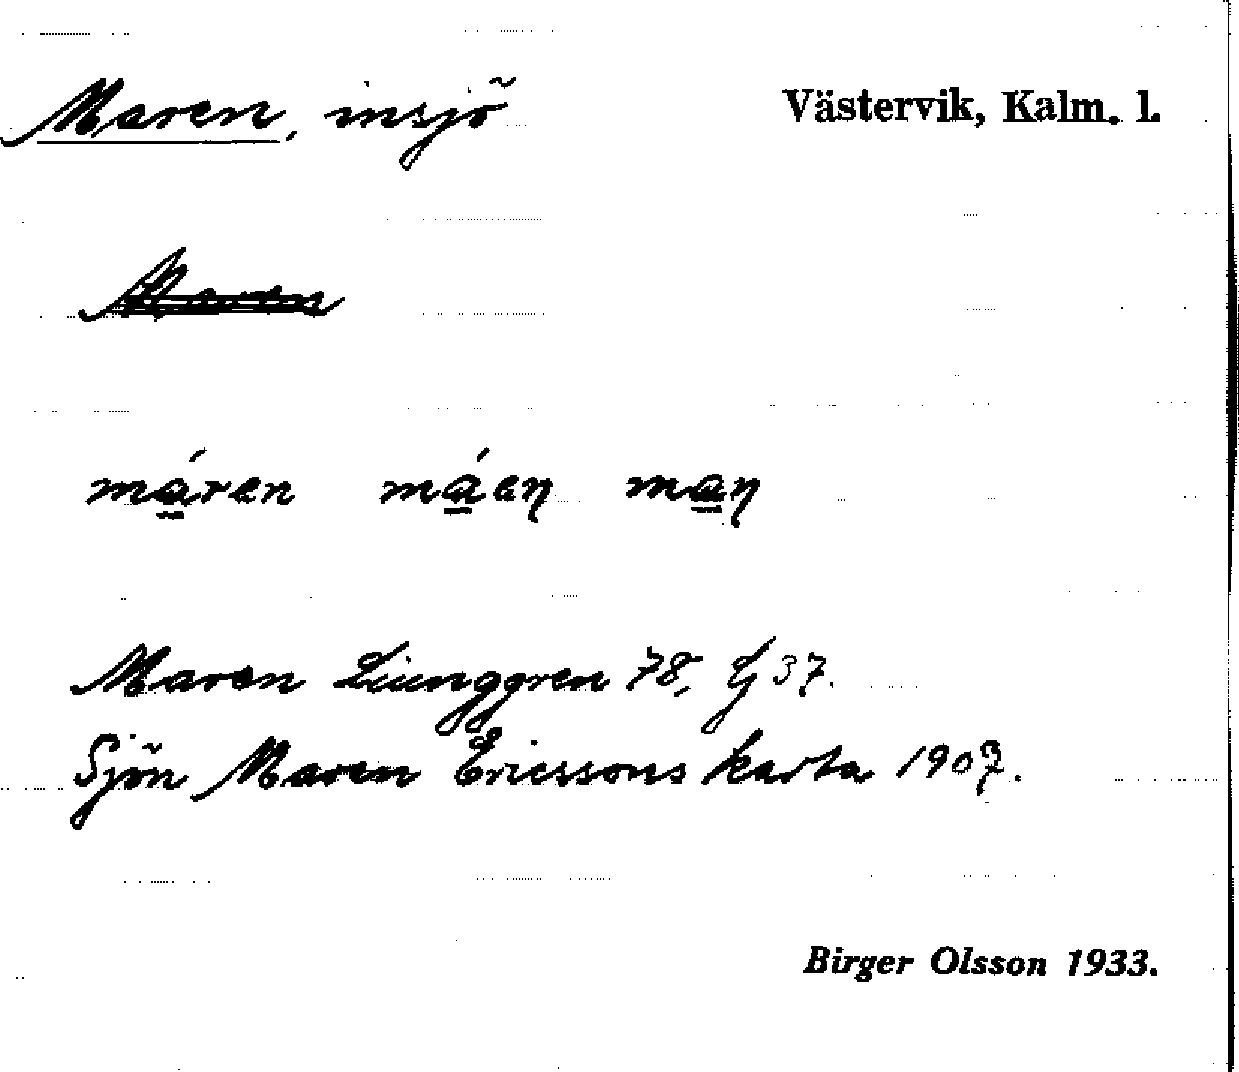 Maren, insjö Västervik, Kalm. l.
Maren
má̱ren má̱eŋ ma̱ŋ
Maren Ljunggren 78, Lj 37.
Sjön Maren Ericssons karta 1907.
Birger Olsson 1933.